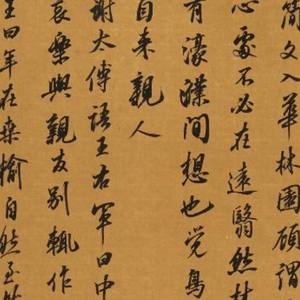 簡文入華林園顧謂
心處不必在遠翳然林
有濠濮間想也觉鳥
自来親人
謝太傅語王右軍曰中
哀樂與親友别輒作
王曰年在桑榆自然至此